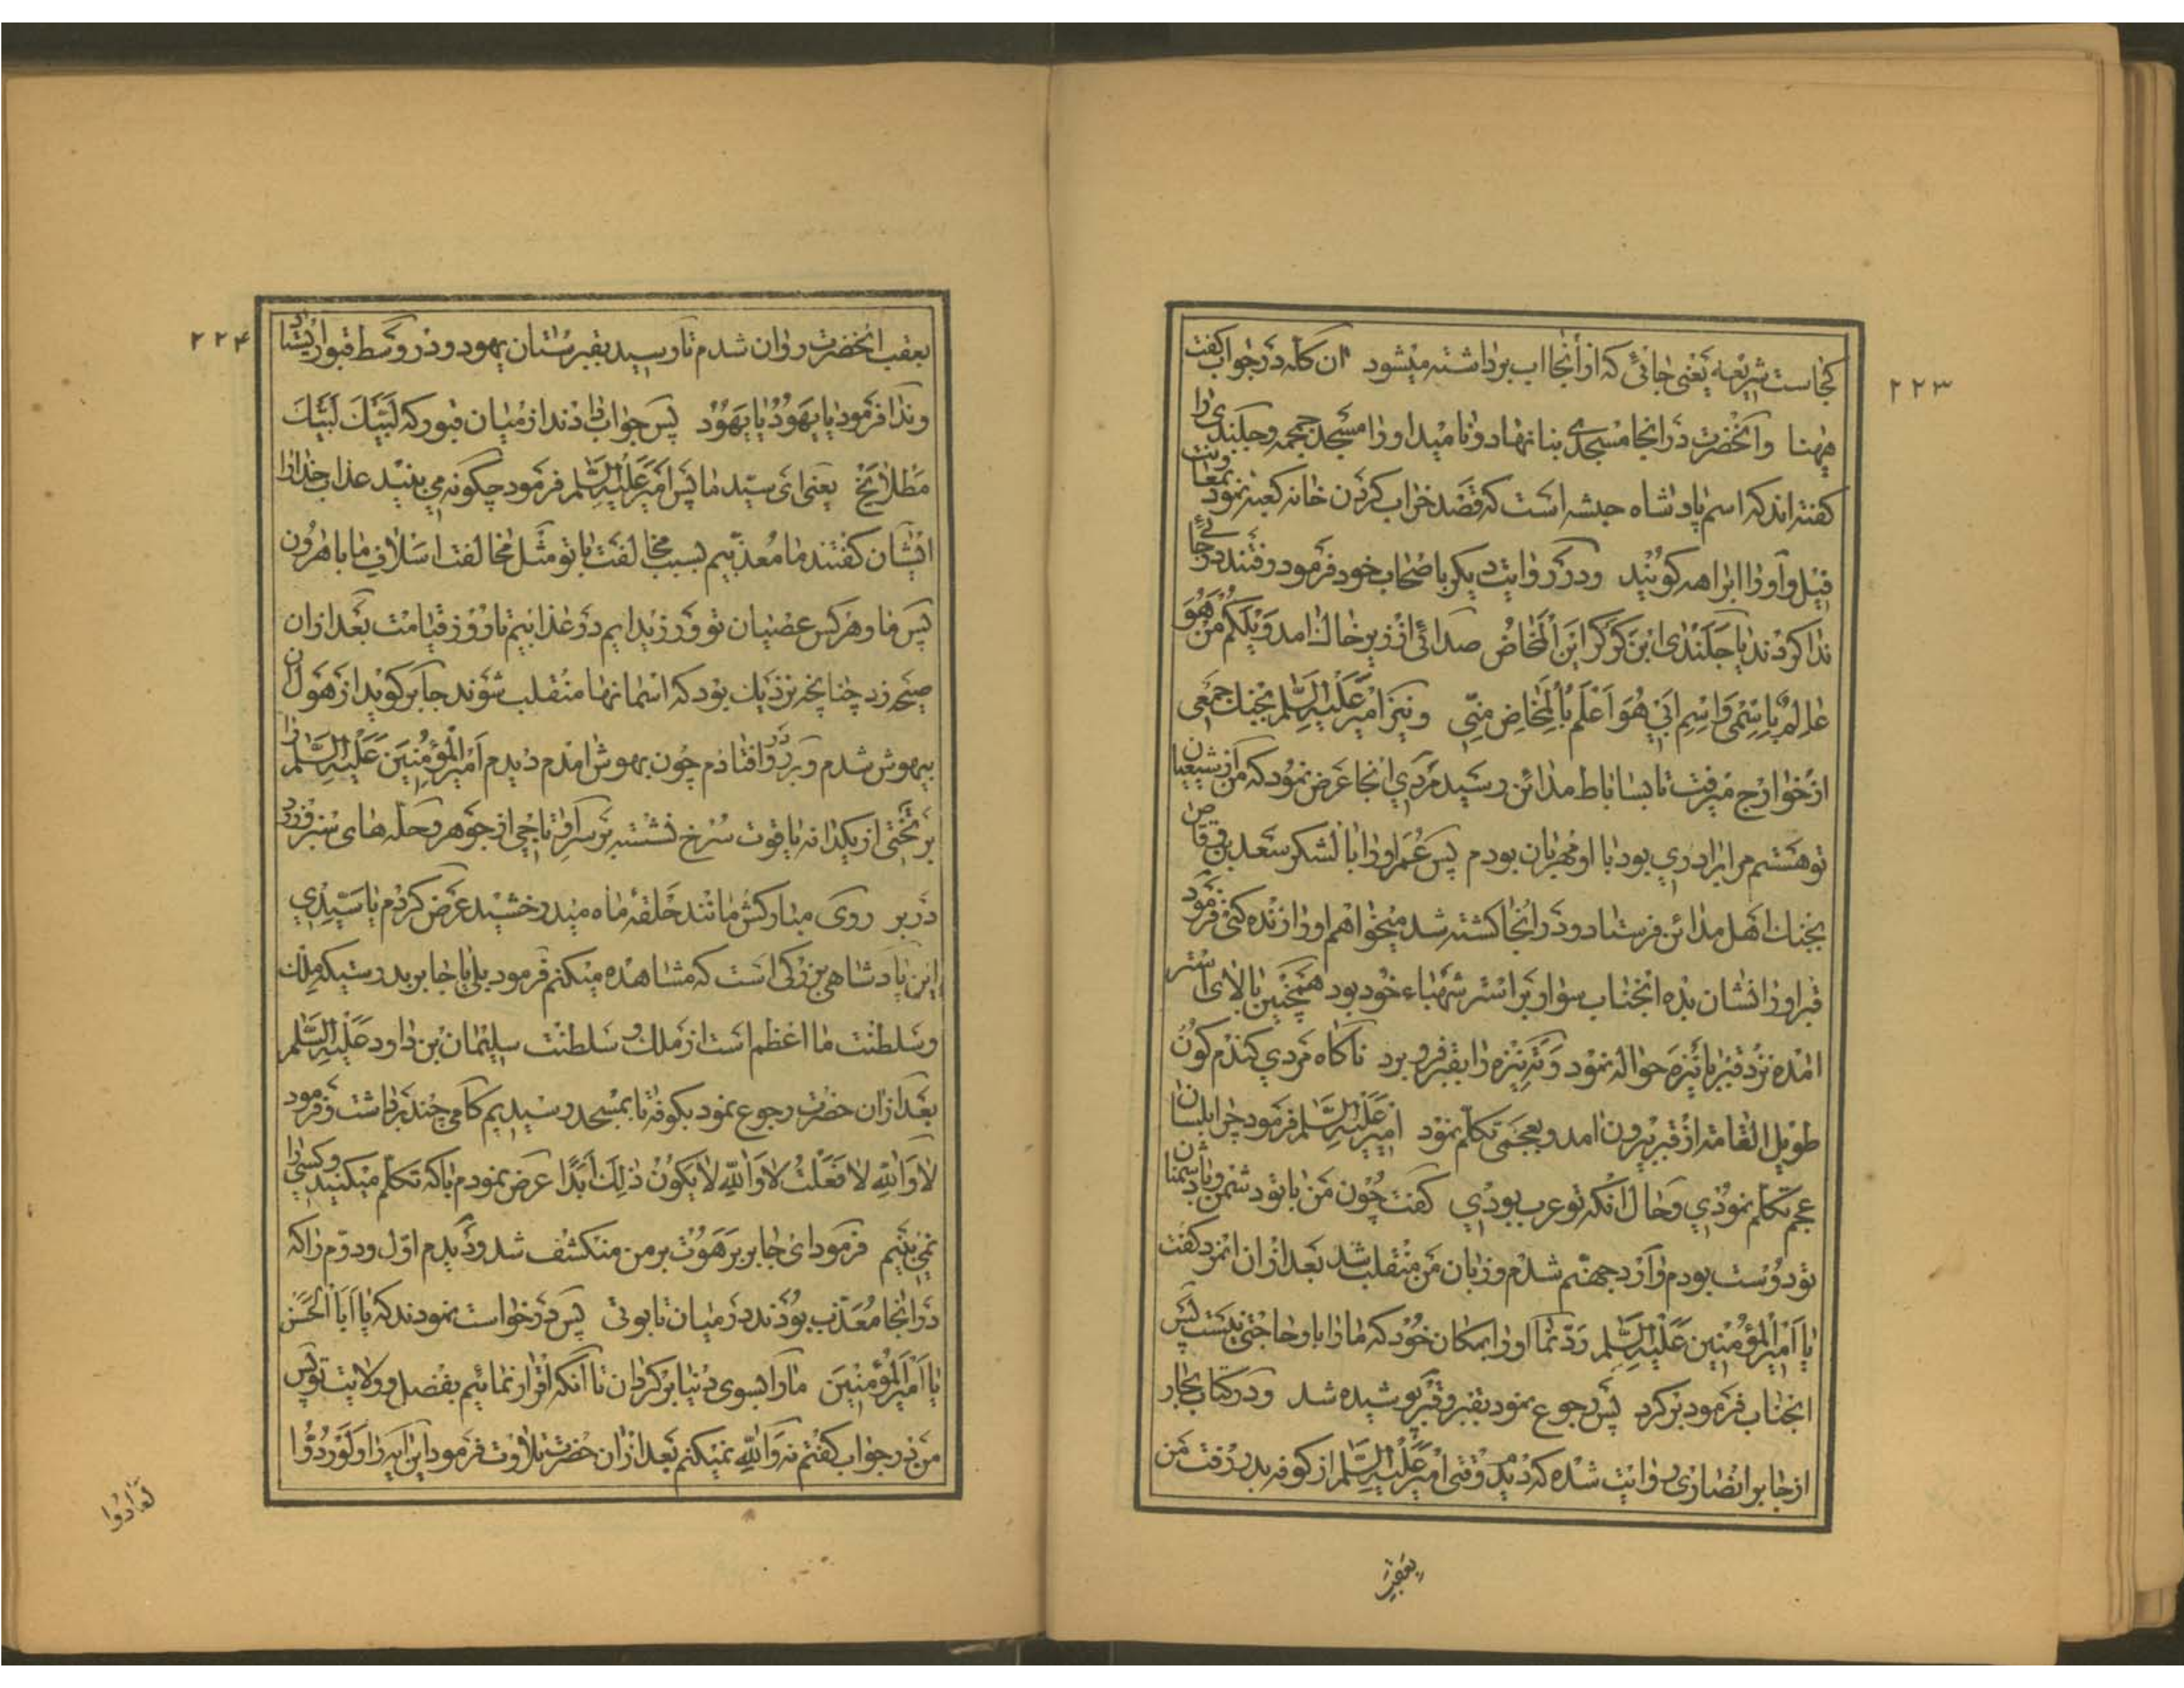 ۲۲۳
کجاست شریعه یعنی جائی که از آنجا اب برداشته میشود ان کله در جواب گفت
هیهنا وانحضرت در انجا مسجدی بنا نهاد و نامید او را مسجد جمجمه وجلندی را
کفته اند که اسم پادشاه حبشه است که قصد خراب کردن خانه کعبه نمود بمعاونت
فیل و او را ابراهه کویند ودر روایت دیکر باصحاب خود فرمود رفتند در جائی
ندا کردند یا جلندی ابن کرکر این المخاض صدائی از زیر خاك امد ویلکم من هو
عالم باسمی واسم ابی هو اعلم بالمخاض منی ونیز امیر علیه السلام بجنك جمعی
از خوارج میرفت تا بساباط مداین رسید مردی انجا عرض نمود که من از شیعیان
تو هستم مرا برادری بود با او مهربان بودم پس عمر او را با لشکر سعد بن وقاص
بجنك اهل مداین فرستاد ودر انجا کشته شد میخواهم او را زنده کنی فرمود
قبر او را نشان بده انجناب سوار بر استر شهباء خود بود همچنین بالای استر
امده نزد قبر با نیزه حواله نمود وته نیزه را بقبر فرو برد ناکاه مردی کندم کون
طویل القامه از قبر بیرون امد و بعجمی تکلم نمود امیر علیه السلام فرمود چرا بلسان
عجم تکلم نمودی وحال انکه تو عرب بودی کفت چون من با تو دشمن و با دشمنان
تو دوست بودم وارد جهنم شدم و زبان من منقلب شد بعد از ان انمرد کفت
یا امیر المؤمنین علیه السلام رد نما او را بمکان خود که ما را با او حاجتی نیست پس
انجناب فرمود برکرد پس رجوع نمود بقبر و قبر پوشیده شد ودر کتاب بحار
از جابر انصاری روایت شده که دیدم وقتی امیر علیه السلام از کوفه بدر رفت من
بعقب
۲۲۴
بعقب انحضرت روان شدم تا رسید بقبرستان یهود ودر وسط قبور ایشان
وندا فرمود یا یهود یا یهود پس جواب دادند از میان قبور که لبیك لبیك
مطلایخ یعنی ای سید ما پس امیر علیه السلام فرمود چکونه می بینید عذاب خدا را
ایشان کفتند ما معذبیم بسبب مخالفت با تو مثل مخالفت اسلاف ما با هرون
پس ما وهر کس عصیان تو ورزیدایم در عذابیم تا روز قیامت بعد از ان
صیحه زد چنانچه نزدیك بود که اسمانها منقلب شوند جابر کوید از هول ان
بیهوش شدم و برو در افتادم چون بهوش امدم دیدم امیر المؤمنین علیه السلام را
بر تختی از یکدانه یاقوت سرخ نشسته بر سر او تاجی از جوهر وحله های سبز وزرد
در بر روی مبارکش مانند حلقه ماه میدرخشید عرض کردم یا سیدی
این پادشاهی بزرکی است که مشاهده میکنم فرمود بلی یا جابر بدرستیکه ملك
وسلطنت ما اعظم است از ملك و سلطنت سلیمان بن داود علیه السلام
بعد از ان حضرت رجوع نمود بکوفه تا بمسجد رسیدیم کامی چند برداشت وفرمود
لا والله لا فعلت لا والله لا یکون ذلك ابدا عرض نمودم با که تکلم میکنید وکسی را
نمی بینم فرمود ای جابر برهوت بر من منکشف شد ودیدم اول ودوم را که
در انجا معذب بودند در میان تابوتی پس درخواست نمودند که یا ابا الحسن
یا امیر المؤمنین ما را بسوی دنیا برکردان تا انکه اقرار نمائیم بفضل و ولایت تو پس
من در جواب کفتم نه والله نمیکنم بعد از ان حضرت تلاوت فرمود این ایه را ولو ردوا
لعادوا